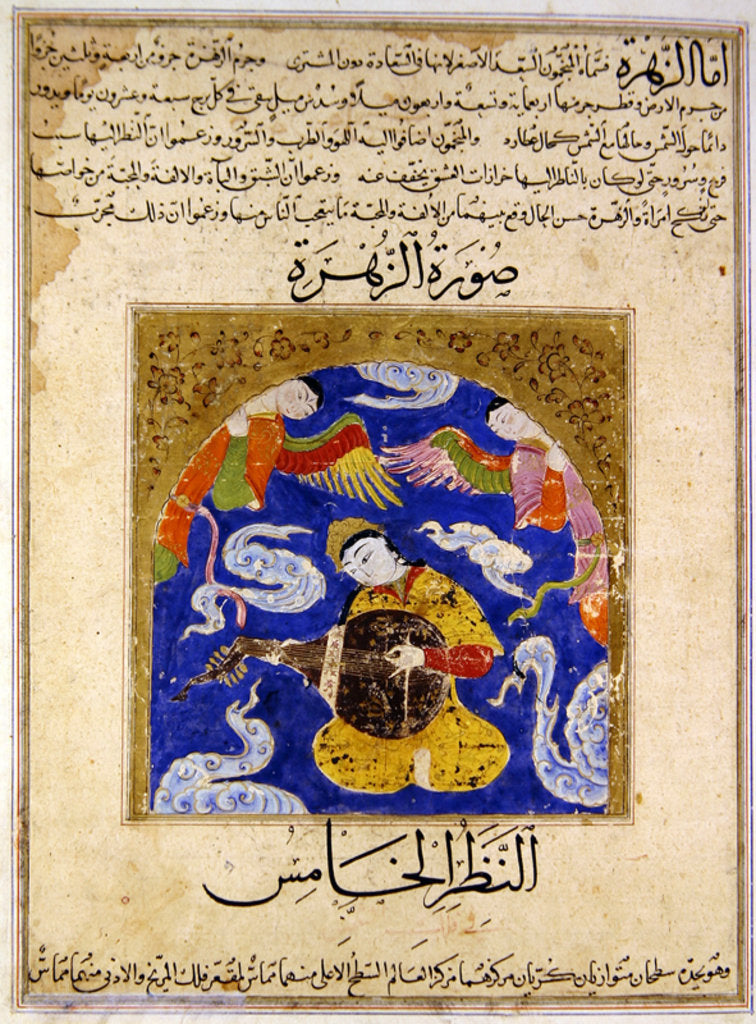 اما الزهرة فسماه المنجمون السعد الاصغر لانها فى السعادة دون المشترى وجرم الزهرة جزؤ من اربعة وثلثين جزؤا
من جرم الارض وقطر جرمها اربعماية وتسعة واربعون ميلا وسدس ميل تبقى فى كل برج سبعة وعشرون يوما ويدور
دائما حول الشمس وحالها مع الشمس كحال عطارد والمنجمون اضافوا اليه اللهو والطرب والسرور وزعموا ان النظر اليها سبب
فرح وسرور حتى لو كان بالناظر اليها حرازات العشق يخفف عنه وزعموا ان الشبق والباة والالفة والمحبة من خواصها
حتى نكح امراة والزهرة حسن الحال وقع بينهما من الالفة والمحبة ما يتعجب الناس منها وزعموا ان ذلك مجرب
صورة الزهرة
النظر الخامس
وهو يحده سطحان متوازيان كريان مركزهما مركز العالم السطح الاعلى منهما مماس لمقعر فلك المريخ والادنى منهما مماس